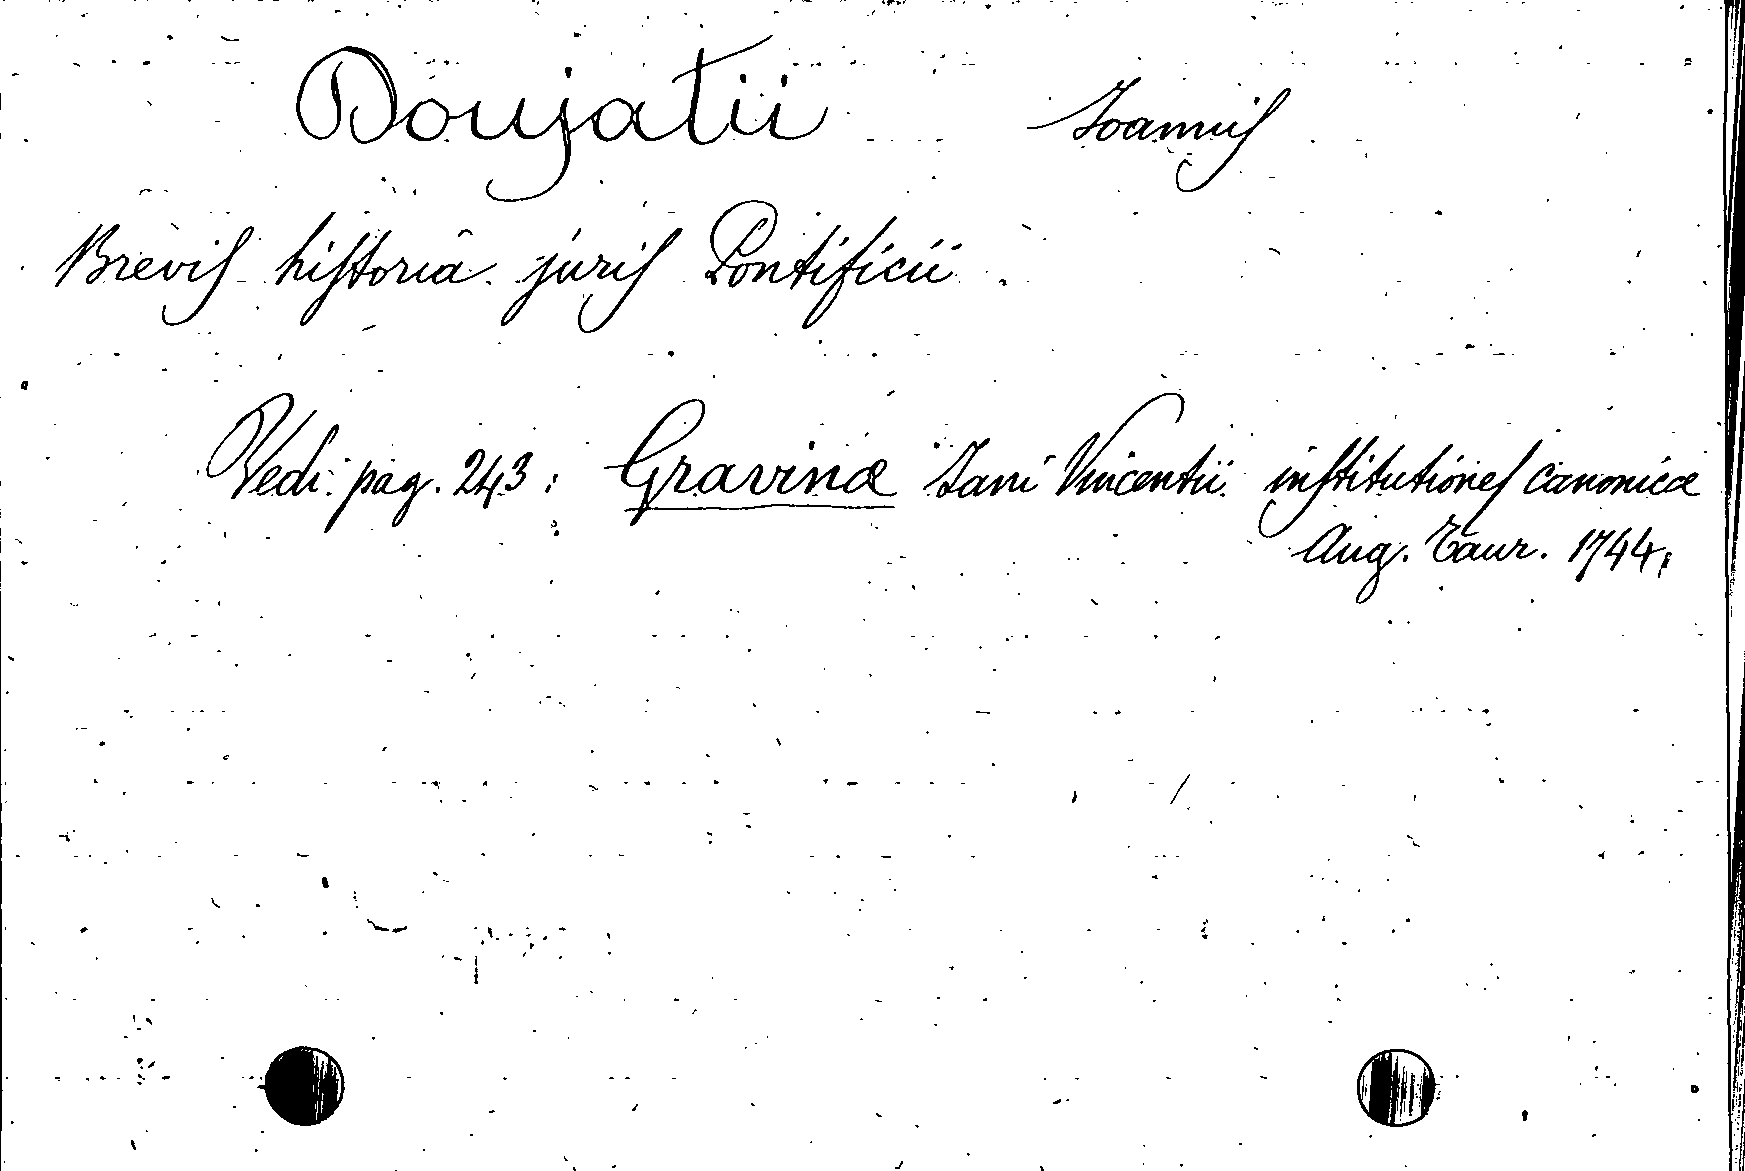 Doujatii Joannis
Brevis historia juris Pontificii.
Vedi pag. 243: Gravinæ Jani Vincentii institutiones canonicæ
Aug. Taur. 1744.